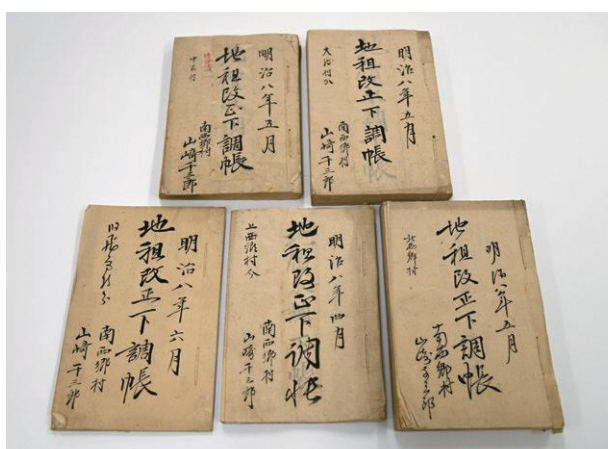 明治八年五月
地租改正下調帳
南西郷村
山崎千三郎
明治八年五月
地租改正下調帳
南西郷村
山崎千三郎
明治八年六月
地租改正下調帳
南西郷村
山崎千三郎
明治八年四月
地租改正下調帳
上西郷村分
南西郷村
山崎千三郎
明治八年五月
地租改正下調帳
北西郷村
南西郷村
山崎千三郎